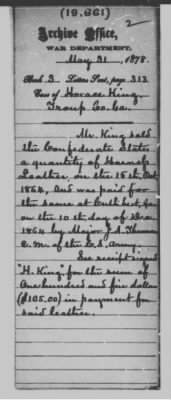 (19.661)
2
Archive Office,
WAR DEPARTMENT,
May 31, 1878.
Book 3 Letters Sent, page 313
Case of Horace King,
Troup Co. Ga.
Mr. King sold
the Confederate States
a quantity of Harness
Leather, on the 15th Oct.
1864, and was paid for
the same at Cuthbert, Ga.
on the 10th day of Dec.
1864 by Major J. A.
Q.M. of the C.S. Army.
See receipt signed
"H. King" for the sum of
One hundred and five dollars
($105.00) in payment for
said leather.